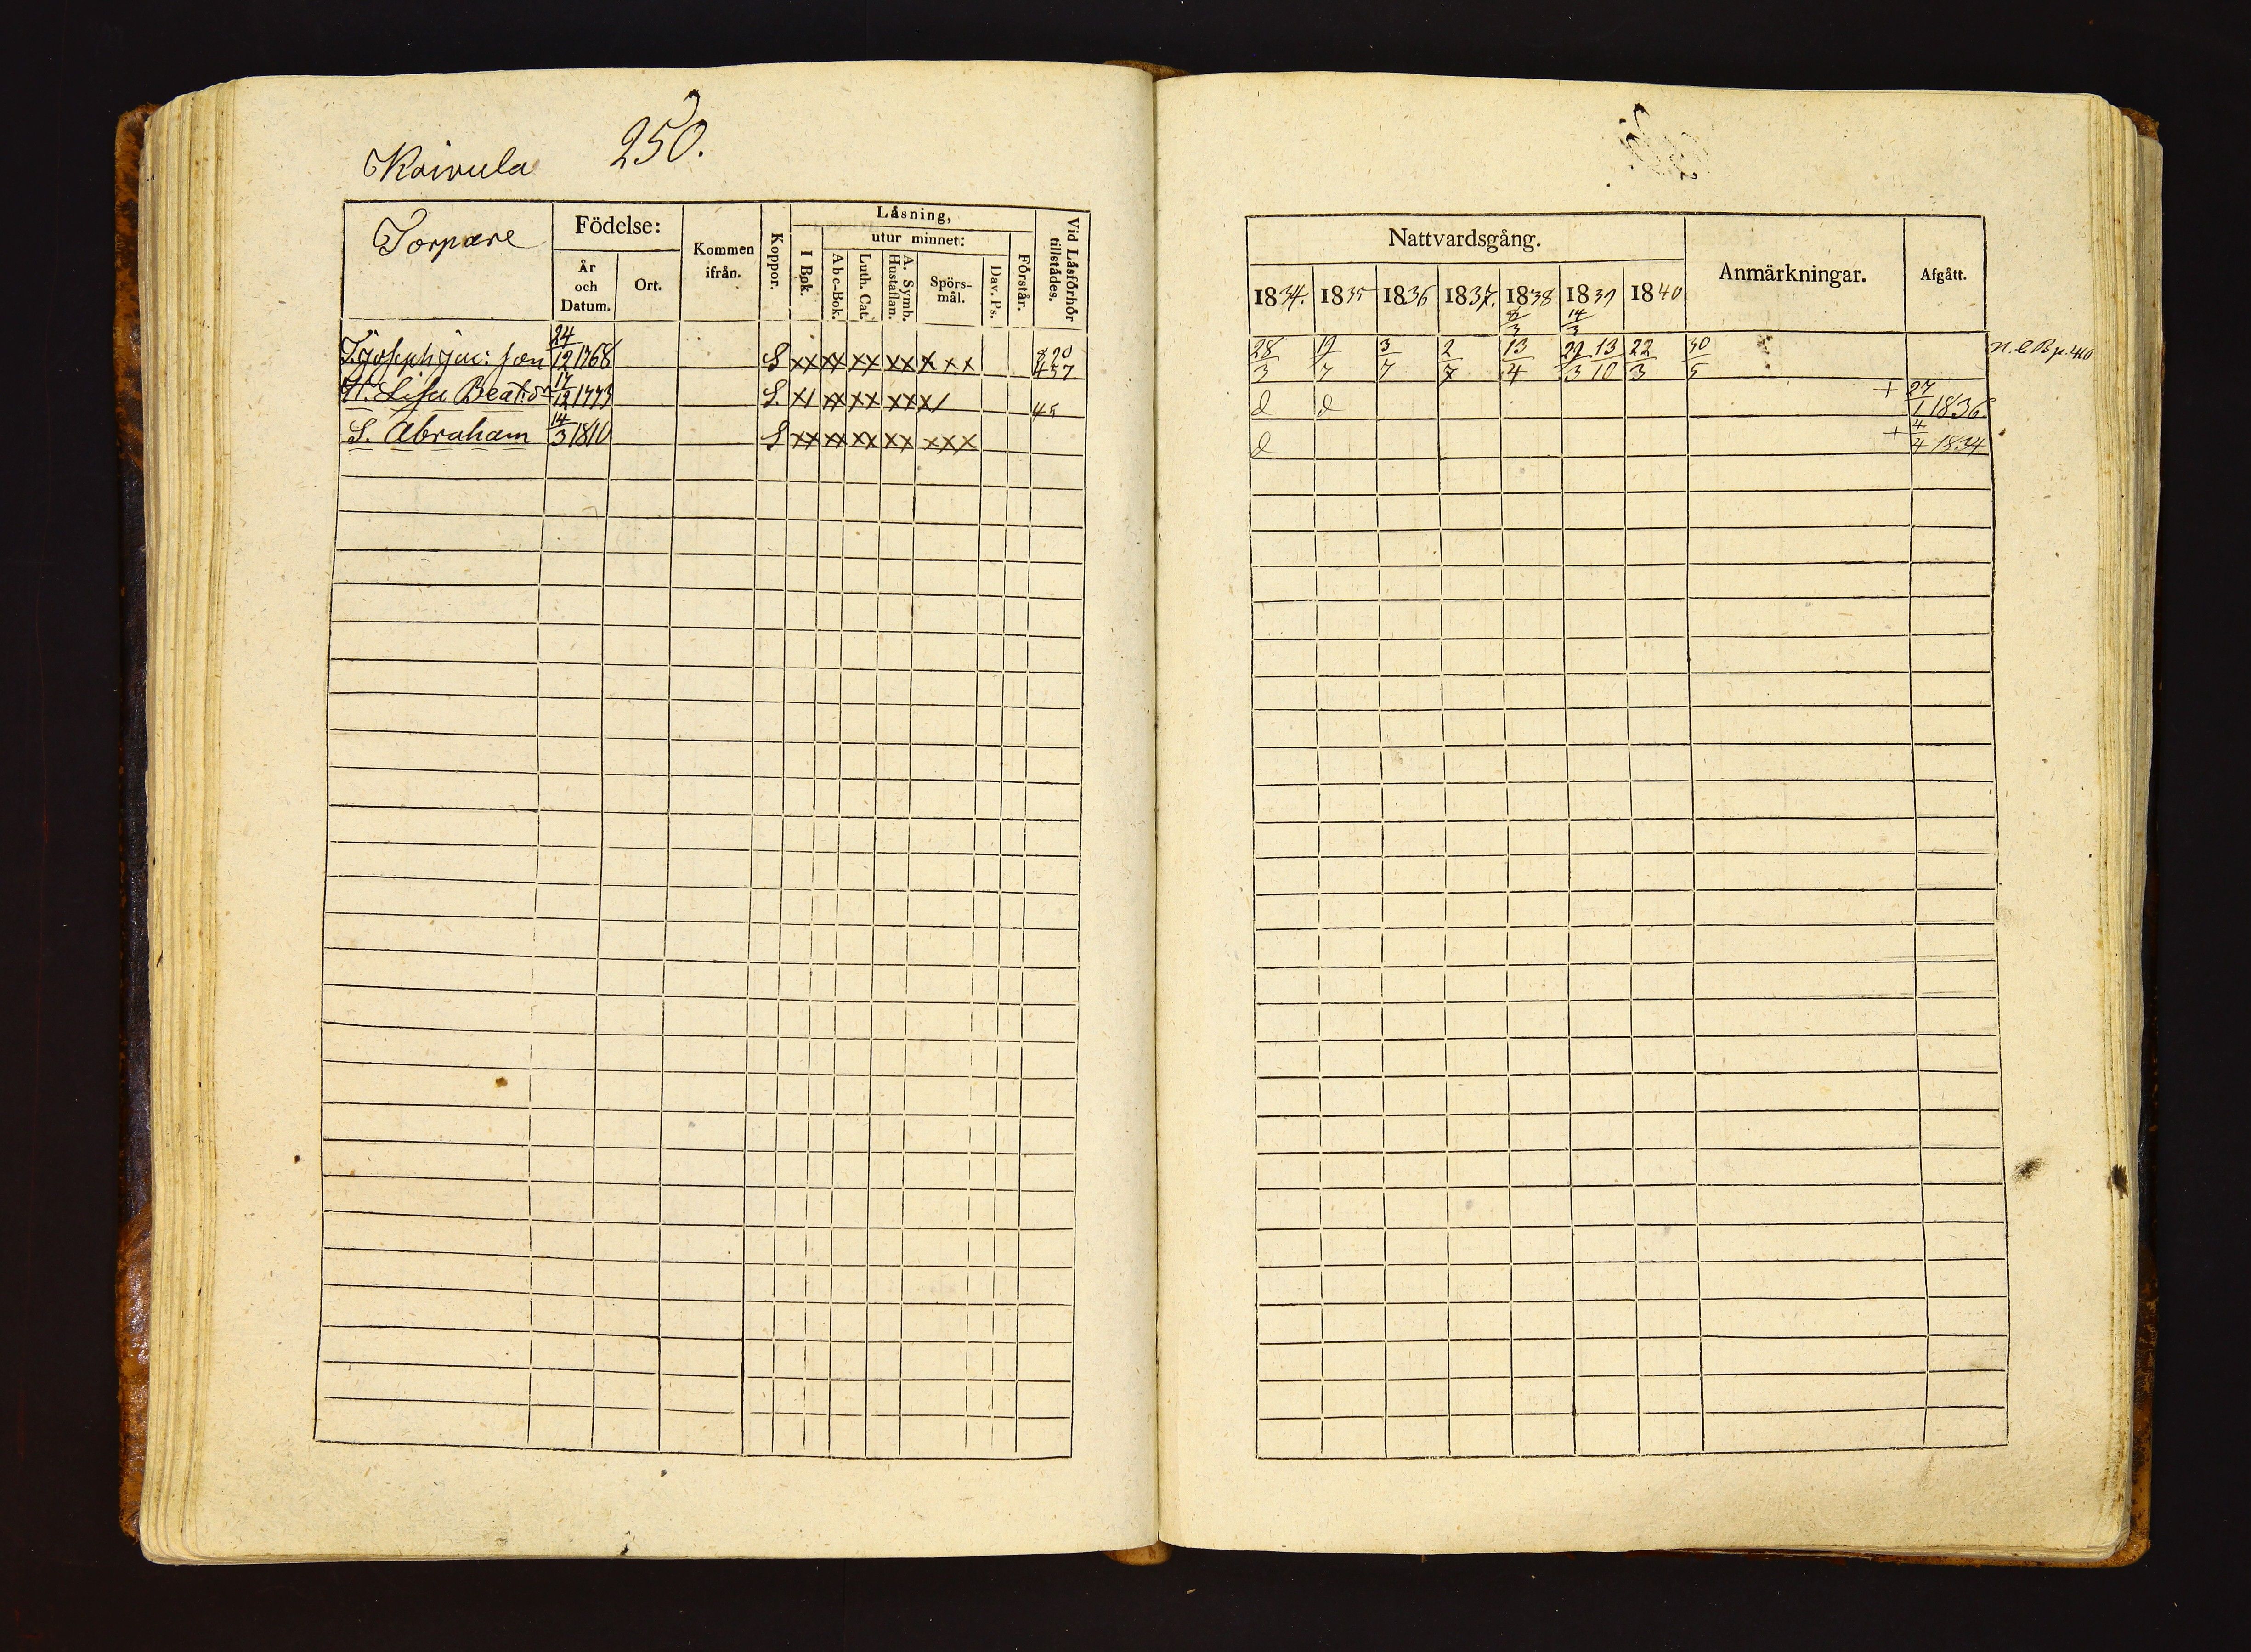 Koivula 250.
Torpare
Födelse:
År och Datum.
Ort.
Kommen ifrån.
Koppor.
Läsning,
I Bok.
utur minnet:
Abc-Bok.
Luth. Cat.
A. Symb. Hustaflan.
Spörs-mål.
Dav. Ps.
Förstår.
Vid Läsförhör tillstådes.
T. Joseph Joh: son 24/12 1768 S xx xx xx xx x x x 8 90 4 57
H. Lisa Beat:dr 17/12 1773 S. x/ xx xx xx x/ 45
S. Abraham 14/3 1810 S xx xx xx xx xxx
Nattvardsgång.
Anmärkningar.
Afgått.
1834. 1835 1836 1837. 1838 1839 1840
8/3 14/3
28/3 19/7 3/7 2/7 13/4 29/3 13/10 22/3 30/5 N.C.B p. 410
d d + 27/1 1836
d + 4/4 1834